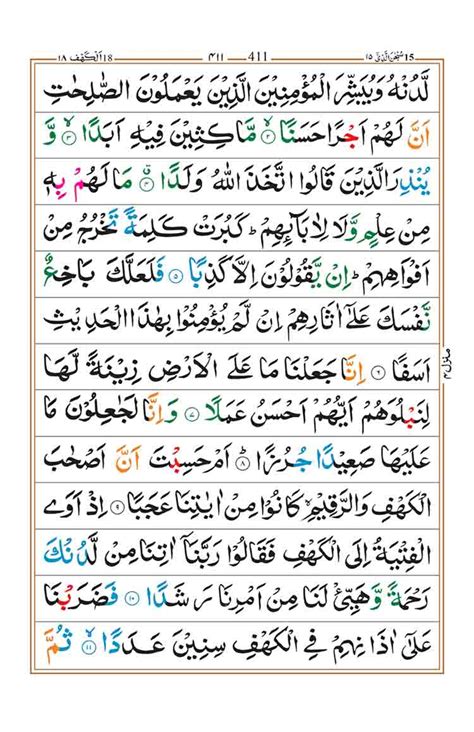 سُبْحٰنَ الَّذِيْٓ ١٥ 15 411 ٤١١ اَلْكَهْف ١٨ 18
لَّدُنْهُ وَيُبَشِّرَ الْمُؤْمِنِيْنَ الَّذِيْنَ يَعْمَلُوْنَ الصّٰلِحٰتِ
اَنَّ لَهُمْ اَجْرًا حَسَنًا ۝٢ مَّاكِثِيْنَ فِيْهِ اَبَدًا ۝٣ وَّ
يُنْذِرَ الَّذِيْنَ قَالُوا اتَّخَذَ اللّٰهُ وَلَدًا ۝٤ مَا لَهُمْ بِهٖ
مِنْ عِلْمٍ وَّلَا لِاٰبَآئِهِمْ ؕ كَبُرَتْ كَلِمَةً تَخْرُجُ مِنْ
اَفْوَاهِهِمْ ؕ اِنْ يَّقُوْلُوْنَ اِلَّا كَذِبًا ۝٥ فَلَعَلَّكَ بَاخِعٌ
نَّفْسَكَ عَلٰٓى اٰثَارِهِمْ اِنْ لَّمْ يُؤْمِنُوْا بِهٰذَا الْحَدِيْثِ
اَسَفًا ۝٦ اِنَّا جَعَلْنَا مَا عَلَى الْاَرْضِ زِيْنَةً لَّهَا
لِنَبْلُوَهُمْ اَيُّهُمْ اَحْسَنُ عَمَلًا ۝٧ وَاِنَّا لَجٰعِلُوْنَ مَا
عَلَيْهَا صَعِيْدًا جُرُزًا ۝٨ؕ اَمْ حَسِبْتَ اَنَّ اَصْحٰبَ
الْكَهْفِ وَالرَّقِيْمِ كَانُوْا مِنْ اٰيٰتِنَا عَجَبًا ۝٩ اِذْ اَوَى
الْفِتْيَةُ اِلَى الْكَهْفِ فَقَالُوْا رَبَّنَآ اٰتِنَا مِنْ لَّدُنْكَ
رَحْمَةً وَّهَيِّئْ لَنَا مِنْ اَمْرِنَا رَشَدًا ۝١٠ فَضَرَبْنَا
عَلٰٓى اٰذَانِهِمْ فِى الْكَهْفِ سِنِيْنَ عَدَدًا ۝١١ ثُمَّ
منزل ٤